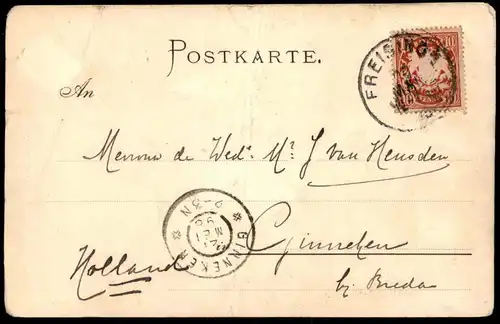 POSTKARTE.
FREISING
An
Mevrouw de Wed. Mr. J van Heusden
GINNEKEN
Ginneken
Holland
bij Breda